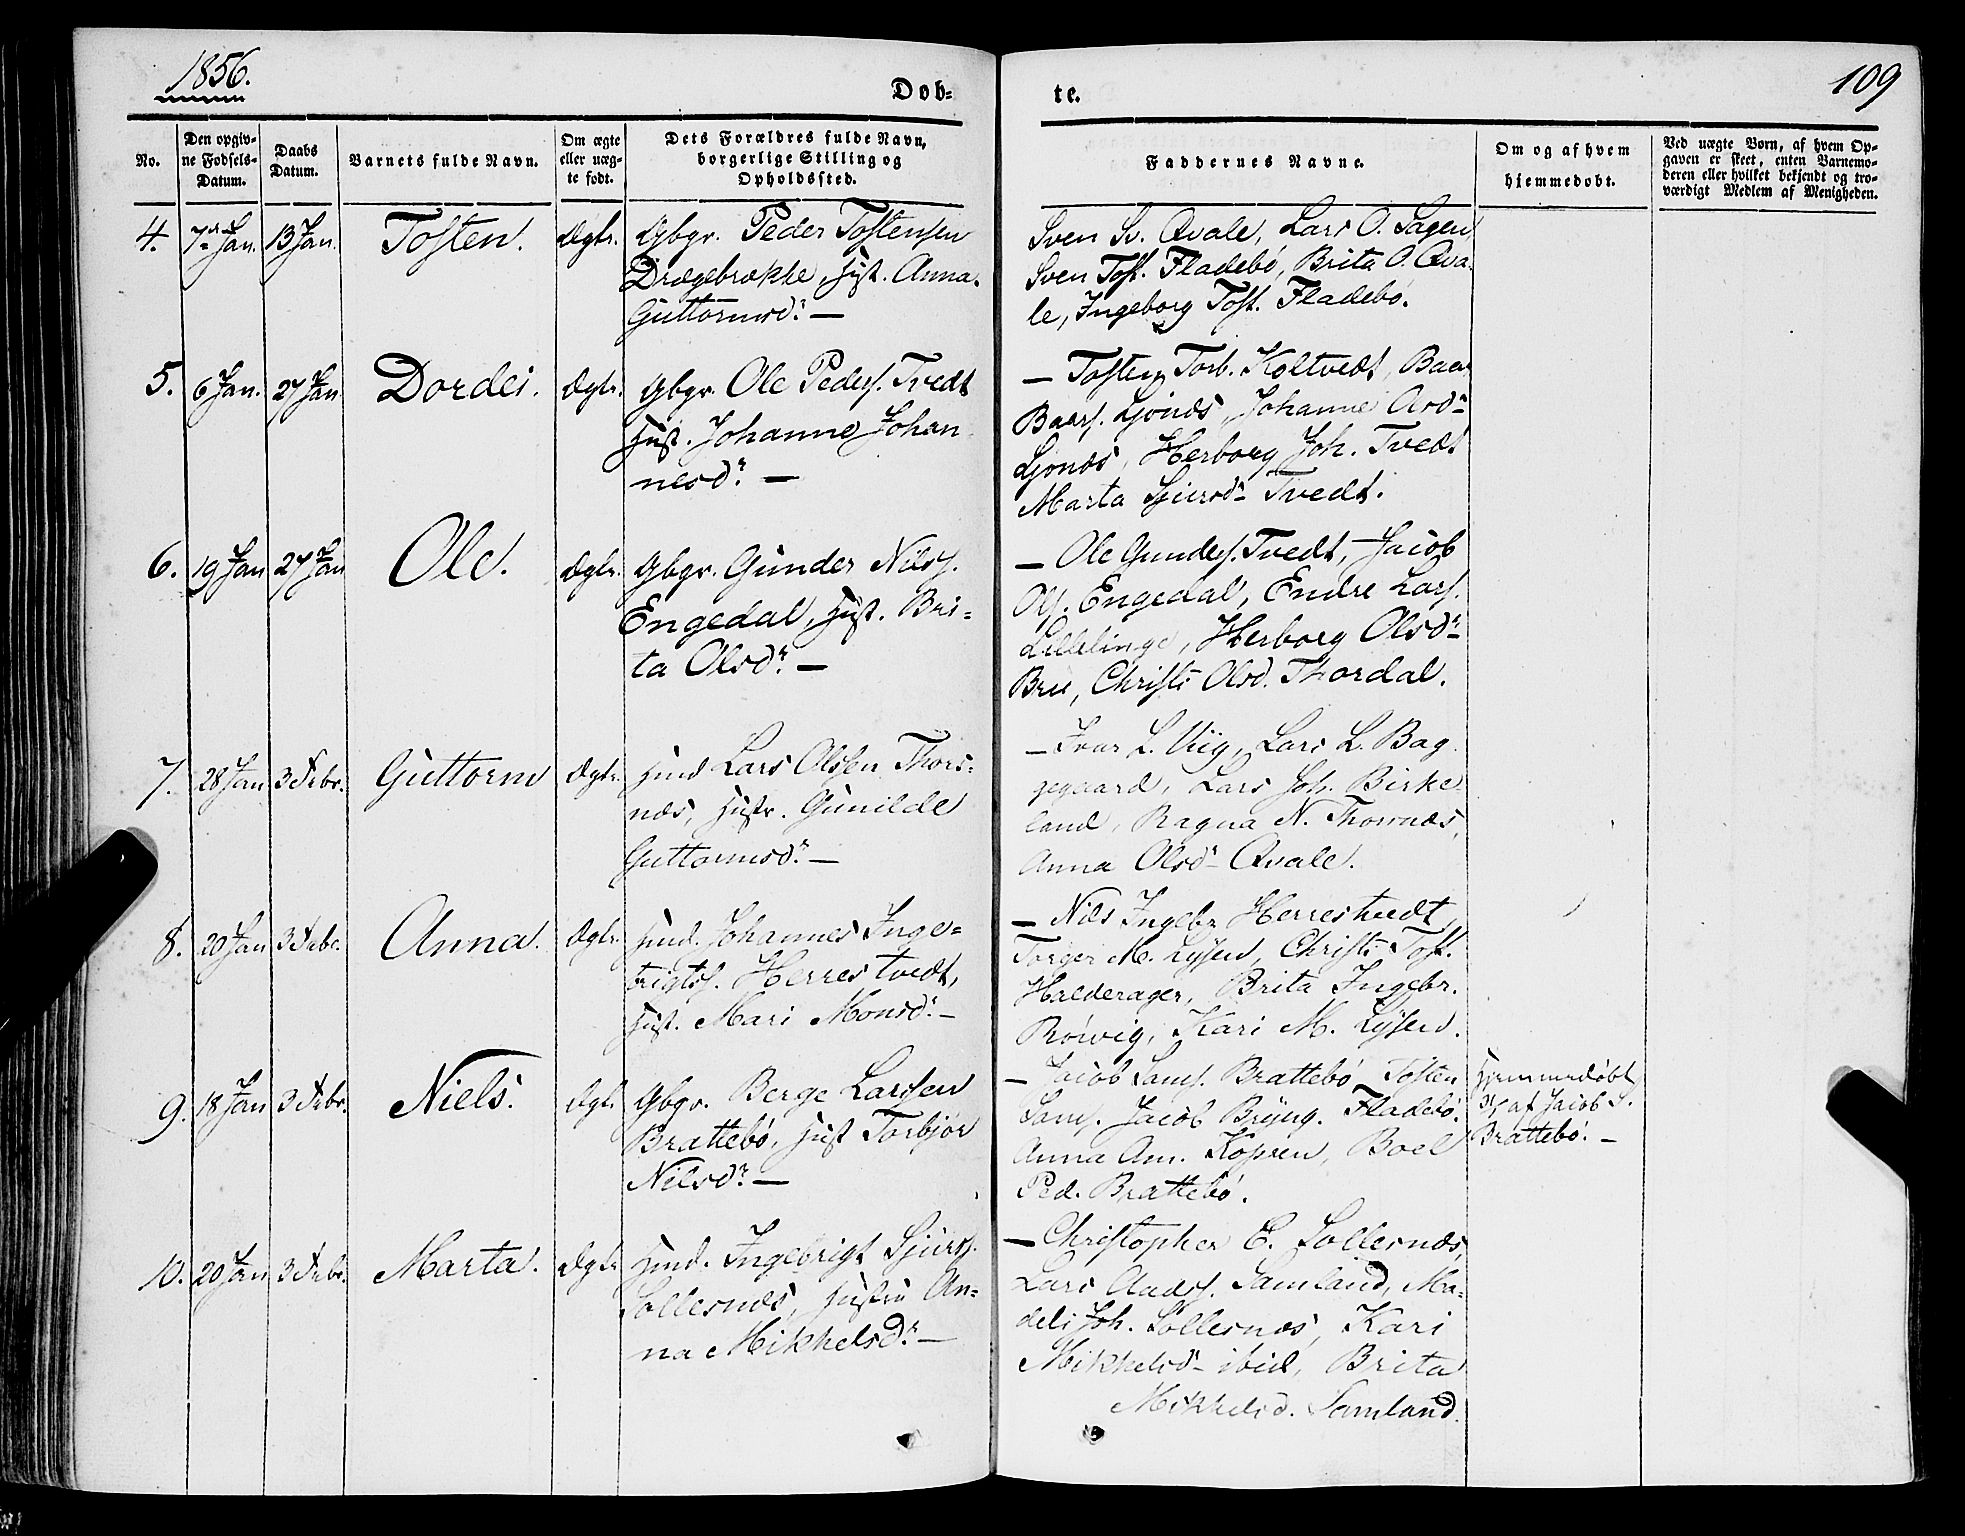 1856.
Døb-
te.
109
No.
Den opgiv-
ne Fødsels-
Datum.
Daabs
Datum.
Barnets fulde Navn.
Om ægte
eller uæg-
te født.
Dets Forældres fulde Navn,
borgerlige Stilling og
Opholdssted.
Faddernes Navne.
Om og af hvem
hjemmedøbt.
Ved uægte Børn, af hvem Op-
gaven er skeet, enten Barnemo-
deren eller hvilket bekjendt og tro-
værdigt Medlem af Menigheden.
4. 7de Jan. 13 Jan. Tosten. Ægte. Gbgr. Peder Tostensen
Drægebrække, Hust. Anna
Guttormsdr. —
Sven Sv. Qvale, Lars O. Sagen
Sven Tost. Fladebø, Brita O. Qva-
le, Ingeborg Tost. Fladebø.
5. 6 Jan. 27 Jan Dordei. Ægte. Gbgr. Ole Peders. Tvedt
Hust. Johanne Johan
nesdr. —
— Tosten Torb. Koltvedt, Baar
Baars. Ljonæs, Johanne Ard-
Ljonæs, Herborg Joh. Tvedt
Marta Sjursd- Tvedt.
6. 19 Jan 27 Jan Ole. Ægte. Gbgr. Gunder Nilss.
Engedal, Hust. Bri-
ta Olsdr. —
— Ole Gunders. Tvedt, Jacob
Ols. Engedal, Endre Lars.
Lillelinge, Herborg Olsdr-
Bru, Christi Olsd. Thordal.
7. 28 Jan 3 Febr. Guttorm Ægte. Huusd Lars Olssen Thors-
næs, Hustr. Gunilde
Guttormsdr. —
— Ivar L. Viig, Lars L. Bag
gegaard, Lars Joh. Birke
land, Ragna N. Thorsnæs,
Anna Olsdr- Qvale.
8. 20 Jan 3 Febr. Anna. Ægte. Huusd. Johannes Inge-
brigts. Herrestvedt,
Hust. Mari Monsdr. —
— Nils Ingebr Herrestvedt,
Torger M. Lysen, Christi Tost.
Halderager, Brita Ingebr.
Røsvig, Kari M. Lysen.
9. 18 Jan 3 Febr. Niels. Ægte Gbgr. Berge Larssen
Brattebø, Hust Torbjør
Nilsdr. —
— Jacob Sams. Brattebø Tosten
Sams. Jacob Bryng. Fladebø
Anna Am. Kopren, Boel
Ped. Brattebø.
Hjemmedøbt
af Jacob S.
Brattebø. —
10. 20 Jan 3 Febr. Marta. Ægte Huusd. Ingebrigt Sjurs.
Sollesnæs, Hustru An-
na Mikkelsdr. —
— Christopher E. Sollesnæs,
Lars Aads. Samland, Ma-
deli Joh. Sollesnæs, Kari
Mikkelsd- ibid, Brita
Mikkelsd. Samland.